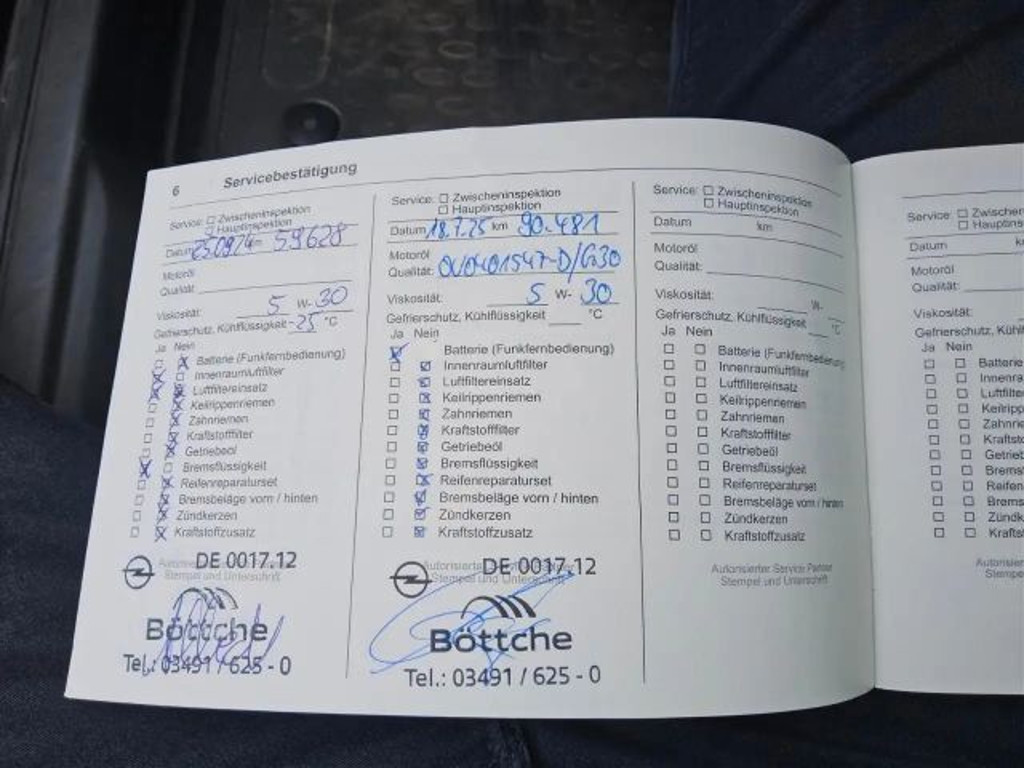 6 Servicebestätigung
Service: Zwischeninspektion
Hauptinspektion
Datum 25.09.24 km 59628
Motoröl
Qualität:
Viskosität: 5 W- 30
Gefrierschutz, Kühlflüssigkeit -25 °C
Ja Nein
Batterie (Funkfernbedienung)
Innenraumluftfilter
Luftfiltereinsatz
Keilrippenriemen
Zahnriemen
Kraftstofffilter
Getriebeöl
Bremsflüssigkeit
Reifenreparaturset
Bremsbeläge vorn / hinten
Zündkerzen
Kraftstoffzusatz
DE 0017.12
Stempel und Unterschrift
Böttche
Tel.: 03491 / 625 - 0
Service: Zwischeninspektion
Hauptinspektion
Datum 18.7.25 km 90.481
Motoröl
Qualität: OV0401547-D/G30
Viskosität: 5 W- 30
Gefrierschutz, Kühlflüssigkeit °C
Ja Nein
Batterie (Funkfernbedienung)
Innenraumluftfilter
Luftfiltereinsatz
Keilrippenriemen
Zahnriemen
Kraftstofffilter
Getriebeöl
Bremsflüssigkeit
Reifenreparaturset
Bremsbeläge vorn / hinten
Zündkerzen
Kraftstoffzusatz
DE 0017.12
Stempel und Unterschrift
Böttche
Tel.: 03491 / 625 - 0
Service: Zwischeninspektion
Hauptinspektion
Datum km
Motoröl
Qualität:
Viskosität: W-
Gefrierschutz, Kühlflüssigkeit °C
Ja Nein
Batterie (Funkfernbedienung)
Innenraumluftfilter
Luftfiltereinsatz
Keilrippenriemen
Zahnriemen
Kraftstofffilter
Getriebeöl
Bremsflüssigkeit
Reifenreparaturset
Bremsbeläge vorn / hinten
Zündkerzen
Kraftstoffzusatz
Autorisierter Service Partner
Stempel und Unterschrift
Service: Zwischen
Haupti
Datum
Motoröl
Qualität:
Viskosität:
Gefrierschutz, Kühlflü
Ja Nein
Batterie
Innenra
Luftfilte
Keilripp
Zahnrie
Kraftsto
Getrieb
Brems
Reifen
Brems
Zündk
Krafts
Autorisier
Stempe